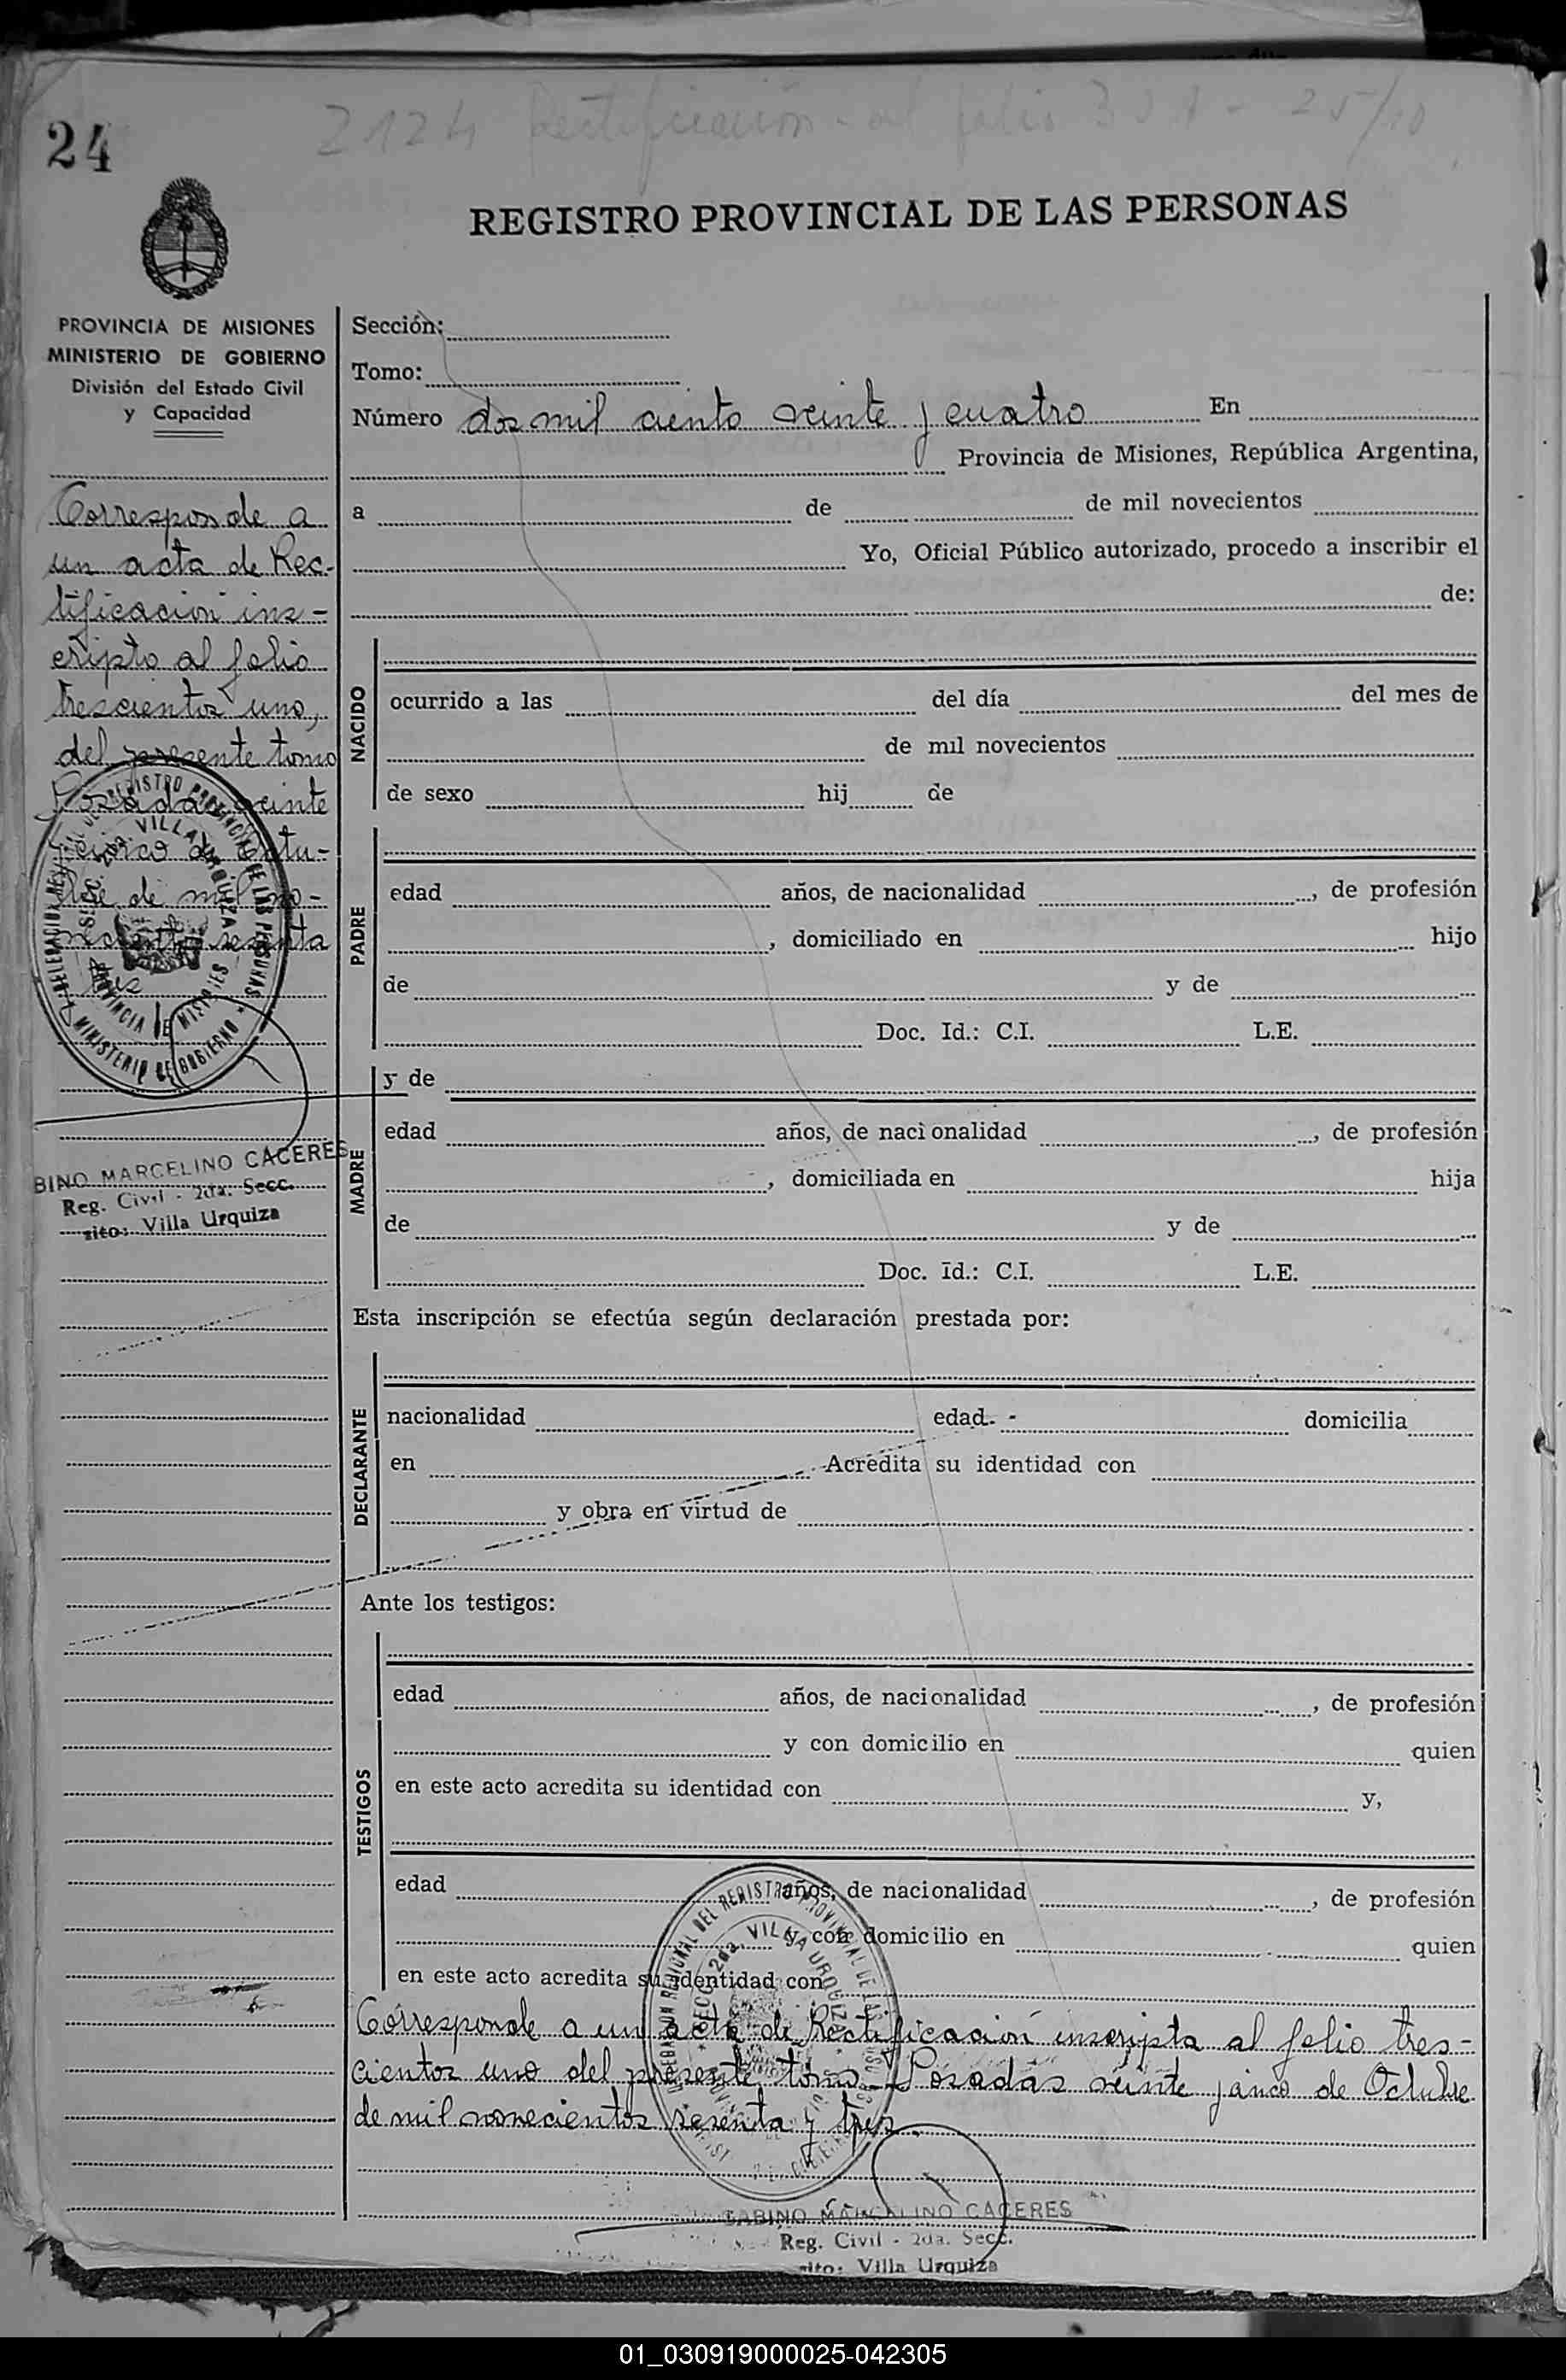 24
2124 Rectificación - al folio 301 - 25/10
REGISTRO PROVINCIAL DE LAS PERSONAS
PROVINCIA DE MISIONES
MINISTERIO DE GOBIERNO
División del Estado Civil
y Capacidad
Corresponde a
un acta de Rec-
tificacion ins-
cripto al folio
trescientos uno,
del presente tomo
Posadas veinte
y cinco de Octu-
bre de mil no-
vecientos sesenta
y tres
DELEGACION REGIONAL DEL REGISTRO PROVINCIAL DE LAS PERSONAS
SECC. 2da. VILLA URQUIZA
PROVINCIA DE MISIONES
MINISTERIO DE GOBIERNO
BINO MARCELINO CACERES
Reg. Civil - 2da. Secc.
sito: Villa Urquiza
Sección:
Tomo:
Número dos mil ciento veinte y cuatro En
Provincia de Misiones, República Argentina,
a de de mil novecientos
Yo, Oficial Público autorizado, procedo a inscribir el
de:
NACIDO
ocurrido a las del día del mes de
de mil novecientos
de sexo hij de
PADRE
edad años, de nacionalidad , de profesión
, domiciliado en hijo
de y de
Doc. Id.: C.I. L.E.
MADRE
y de
edad años, de nacionalidad , de profesión
, domiciliada en hija
de y de
Doc. Id.: C.I. L.E.
Esta inscripción se efectúa según declaración prestada por:
DECLARANTE
nacionalidad edad domicilia
en Acredita su identidad con
y obra en virtud de
Ante los testigos:
TESTIGOS
edad años, de nacionalidad , de profesión
y con domicilio en quien
en este acto acredita su identidad con y,
edad años, de nacionalidad , de profesión
y con domicilio en quien
en este acto acredita su identidad con
Corresponde a un acta de Rectificacion inscripta al folio tres-
cientos uno del presente tomo - Posadas veinte y cinco de Octubre
de mil novecientos sesenta y tres.
SABINO MARCELINO CACERES
Reg. Civil - 2da. Secc.
sito: Villa Urquiza
01_030919000025-042305